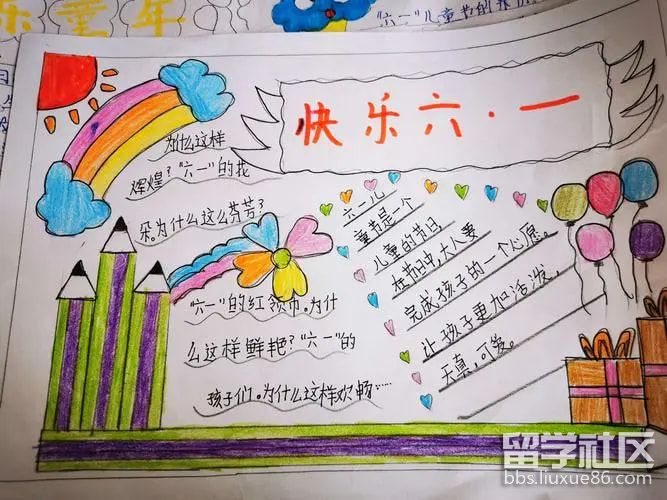 乐童年
"六一"儿童节的
快乐六·一
为什么这样
辉煌?"六一"的花
朵。为什么这么芬芳?
"六一"的红领巾。为什
么这样鲜艳?"六一"的
孩子们。为什么这样欢畅……
六一儿
童节是一个
儿童的节日
在节日中,大人要
完成孩子的一个心愿。
让孩子更加活泼,
天真,可爱。
留学社区
bbs.liuxue86.com